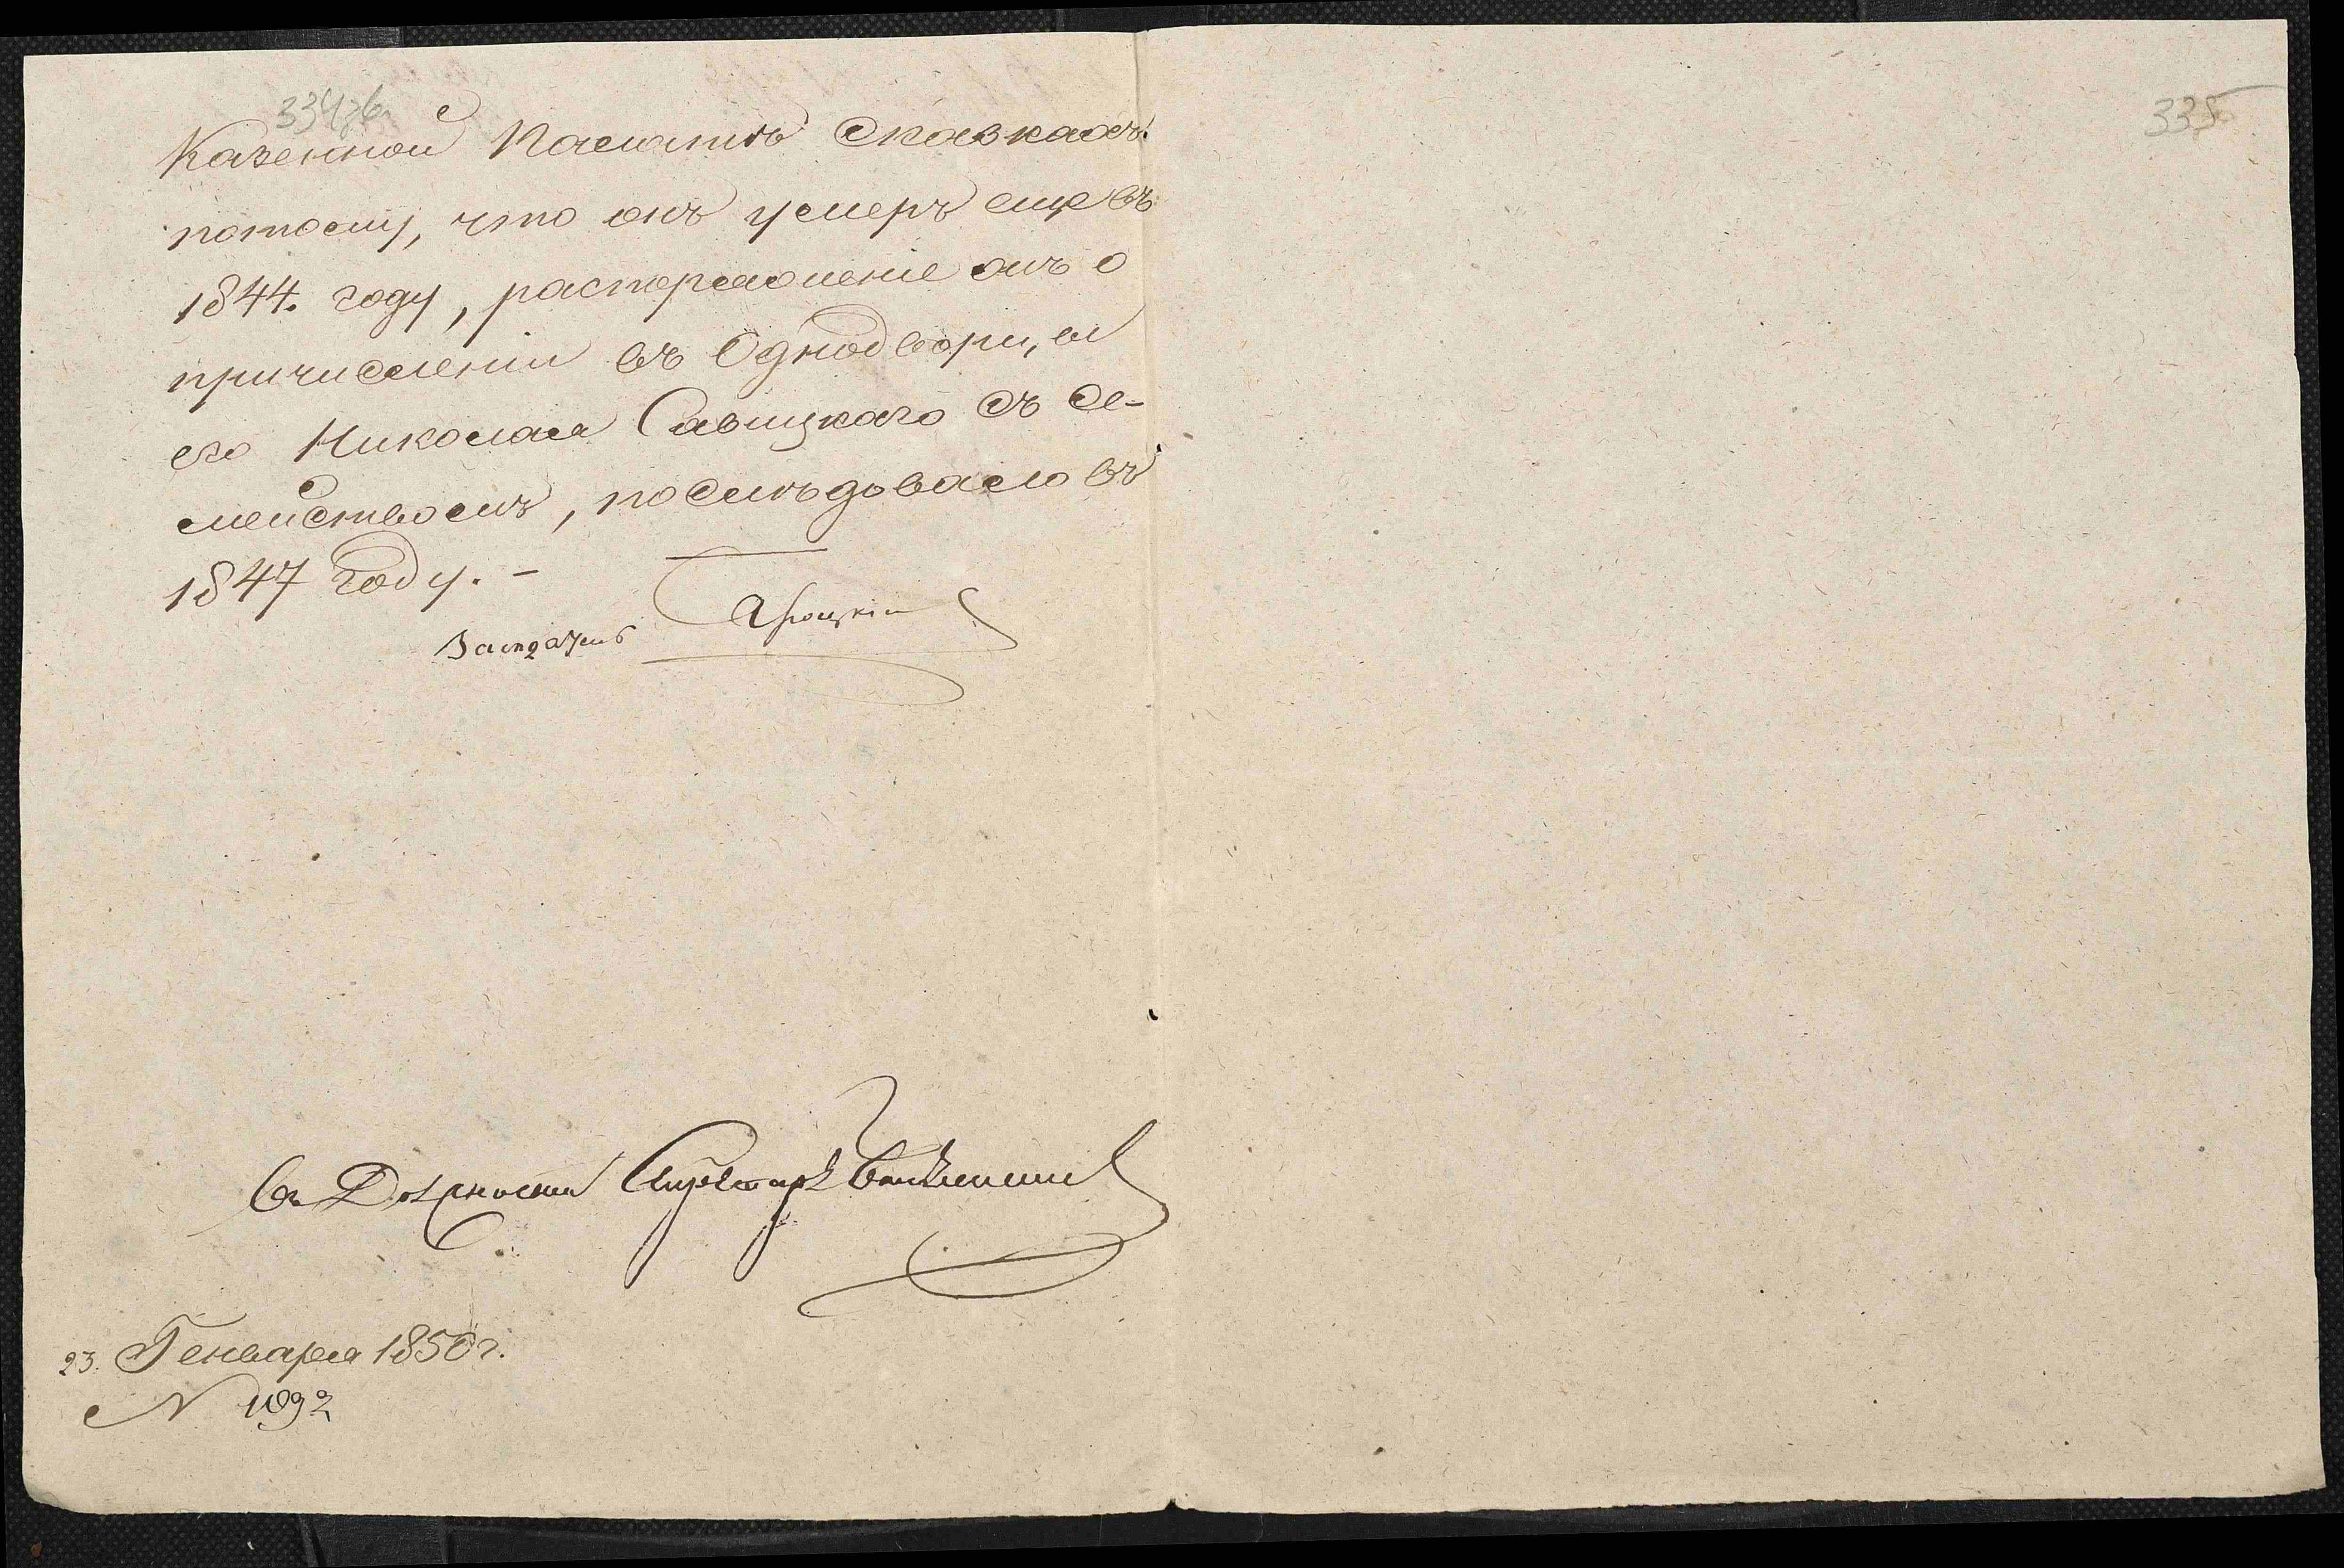 334об
335
Казенной Палатѣ Сказкахъ
потому, что онъ умеръ еще въ
1844. году, распоряженіе жъ о
причисленіи въ Однодворцы
его Николая Савицкаго съ Се-
мействомъ, последовало въ
1847 году. –
Засѣдатель
въ Должности Секретаря
23. Генваря 1850 г.
N 1092